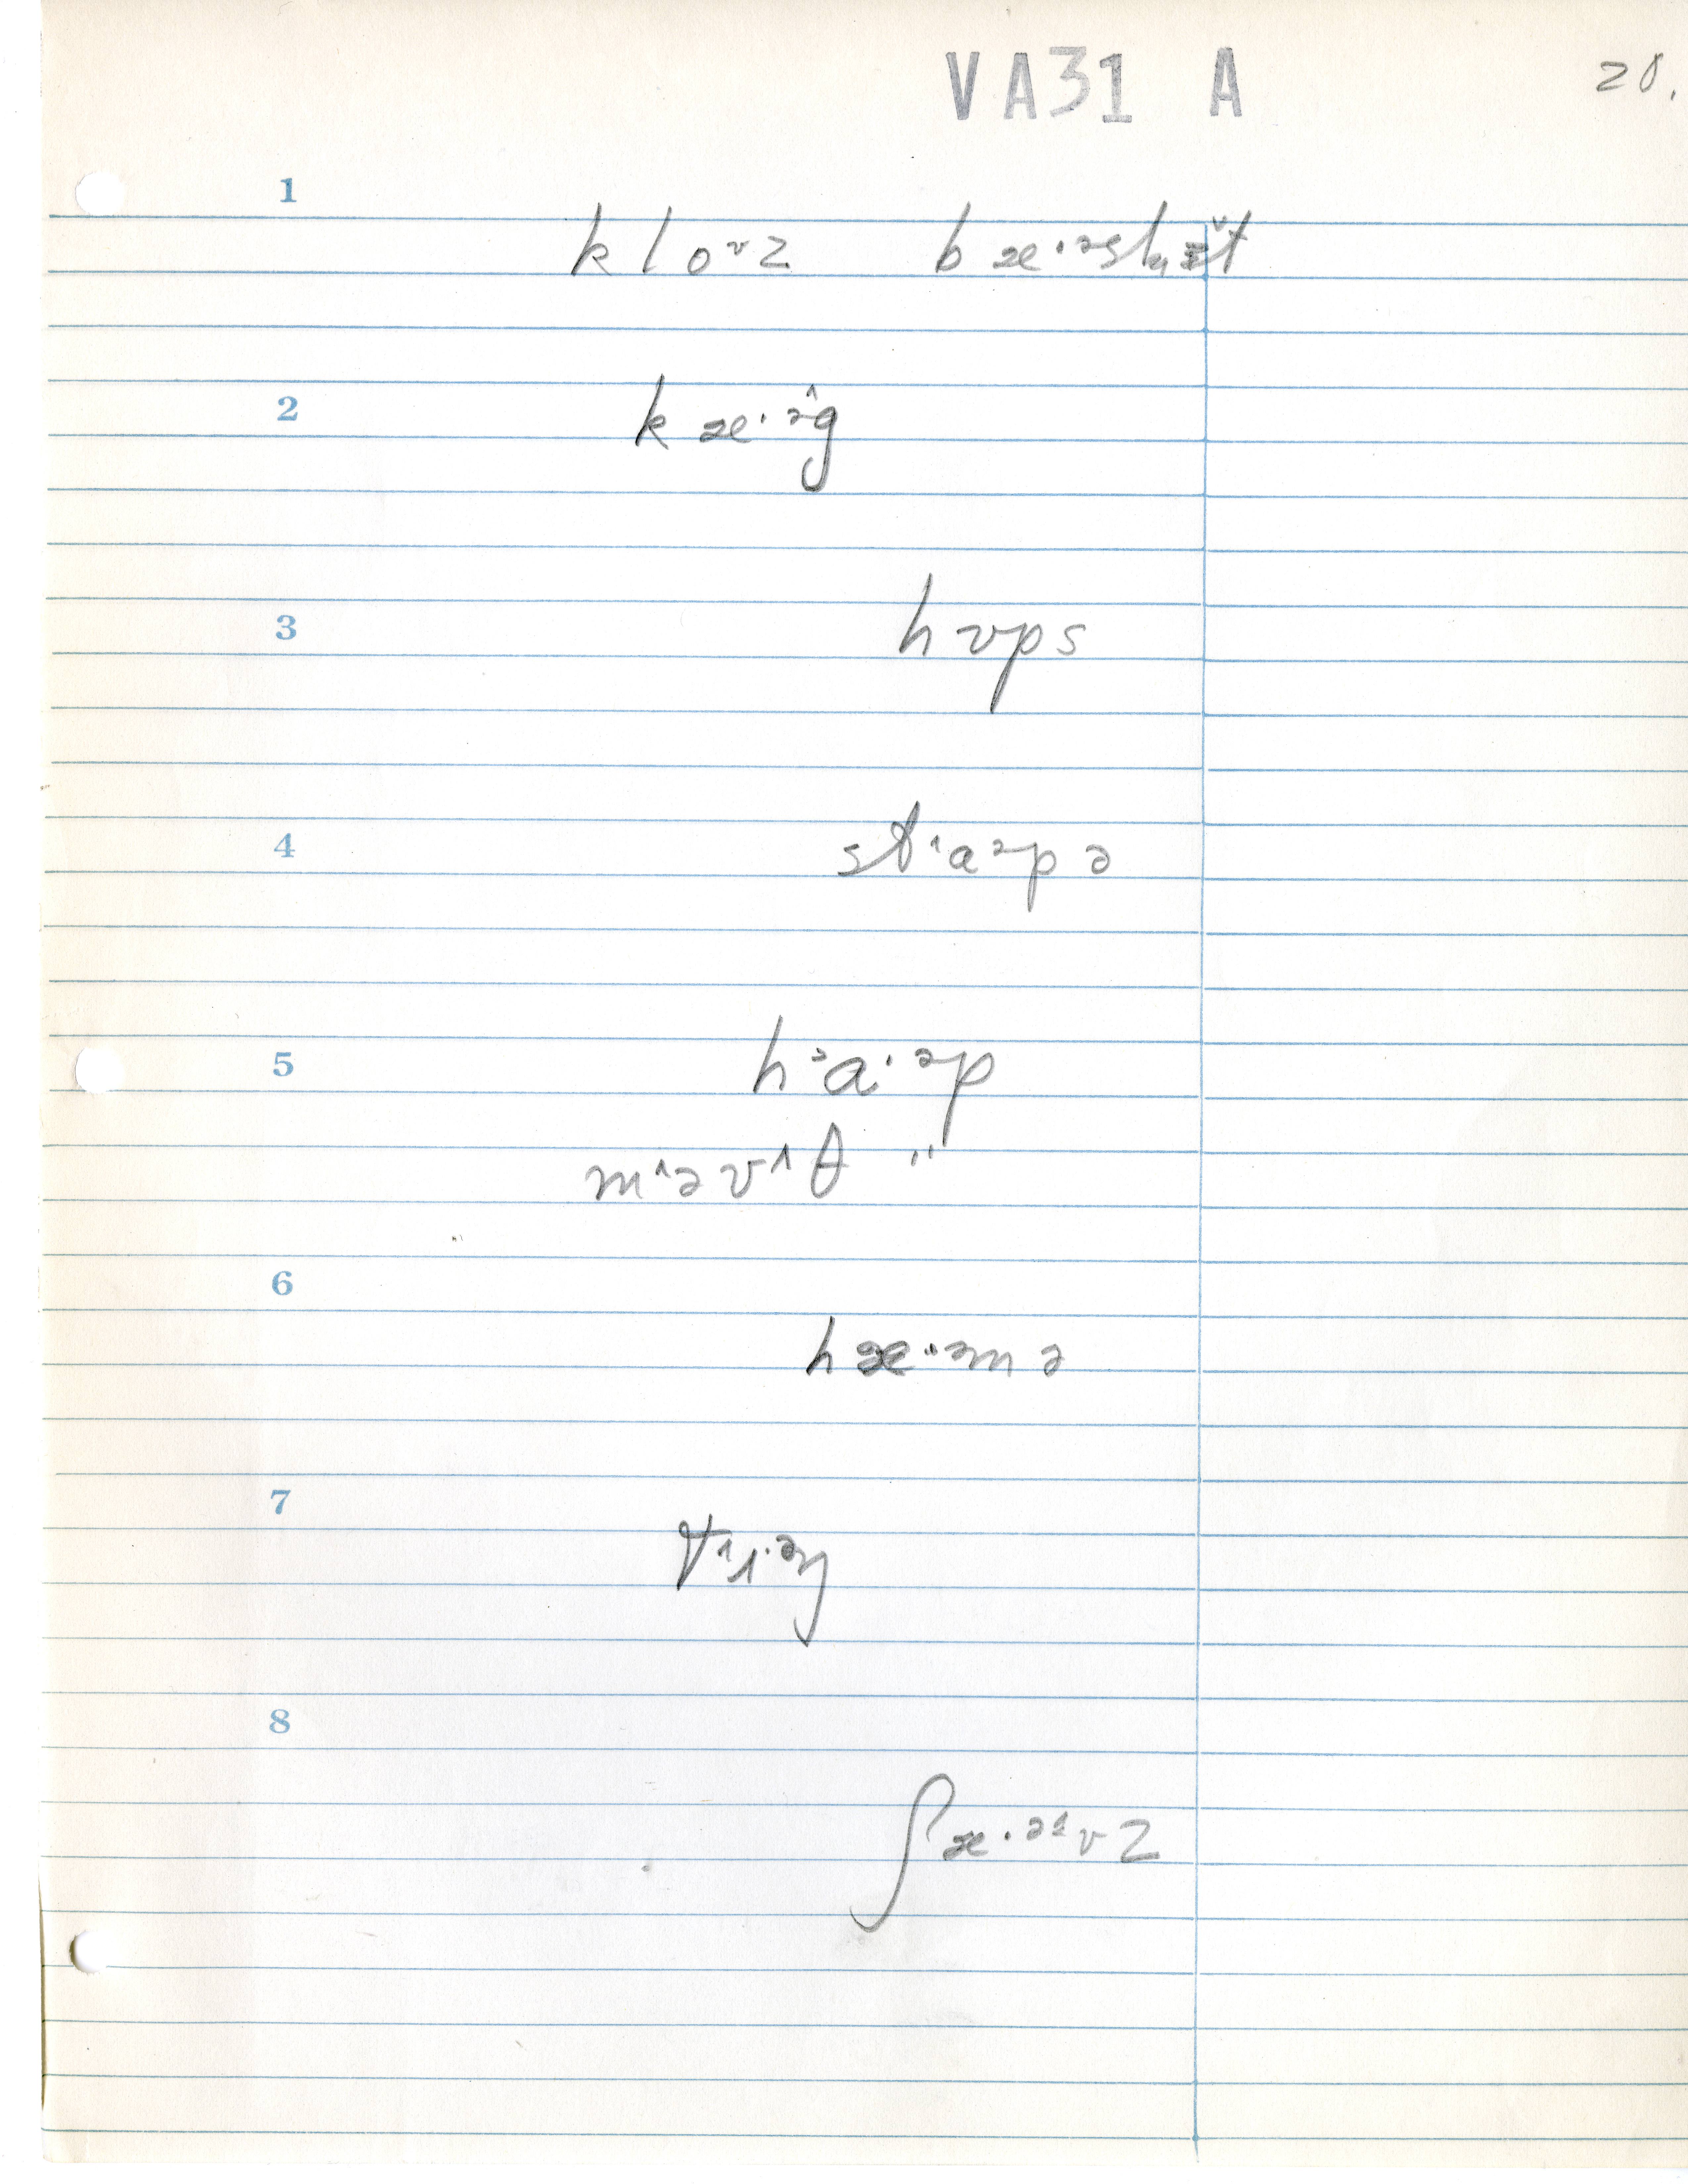 VA31 A
20.
1
kloᶷz bæ·ᵊskɪ̆t
2
kæ·ᵊ̂g
3
hʊps
4
stˈaᵊpə
5
hᵊa·ᵊp
m˄əʊ˄θ "
6
hæ·ᵊmə
7
8
ʃæ·ᵊvz